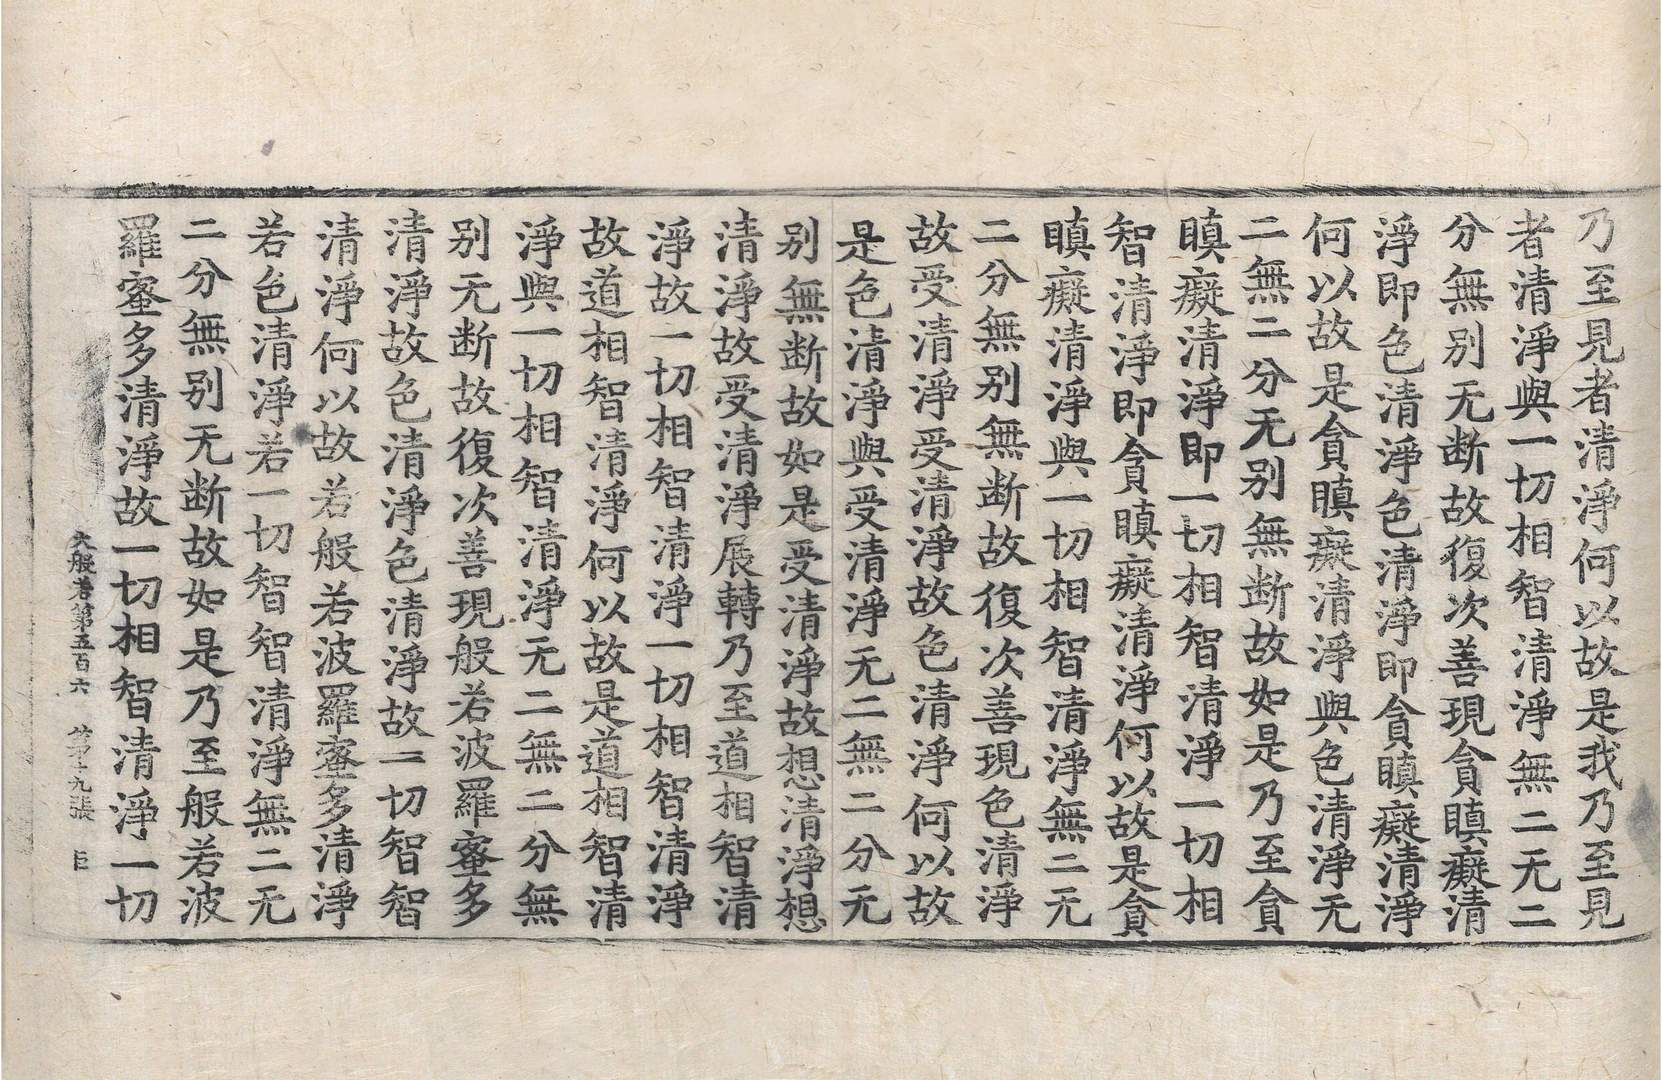 乃至見者清淨何以故是我乃至見
者清淨與一切相智清淨無二无二
分無别无断故復次善現貪瞋癡清
淨即色清淨色清淨即貪瞋癡清淨
何以故是貪瞋癡清淨與色清淨无
二無二分无别無断故如是乃至貪
瞋癡清淨即一切相智清淨一切相
智清淨即貪瞋癡清淨何以故是貪
瞋癡清淨與一切相智清淨無二无
二分無别無断故復次善現色清淨
故受清淨受清淨故色清淨何以故
是色清淨與受清淨无二無二分无
别無断故如是受清淨故想清淨想
清淨故受清淨展轉乃至道相智清
淨故一切相智清淨一切相智清淨
故道相智清淨何以故是道相智清
淨與一切相智清淨无二無二分無
别无断故復次善現般若波羅蜜多
清淨故色清淨色清淨故一切智智
清淨何以故若般若波羅蜜多清淨
若色清淨若一切智智清淨無二无
二分無别无断故如是乃至般若波
羅蜜多清淨故一切相智清淨一切
大般若第五百六 第十九張 巨